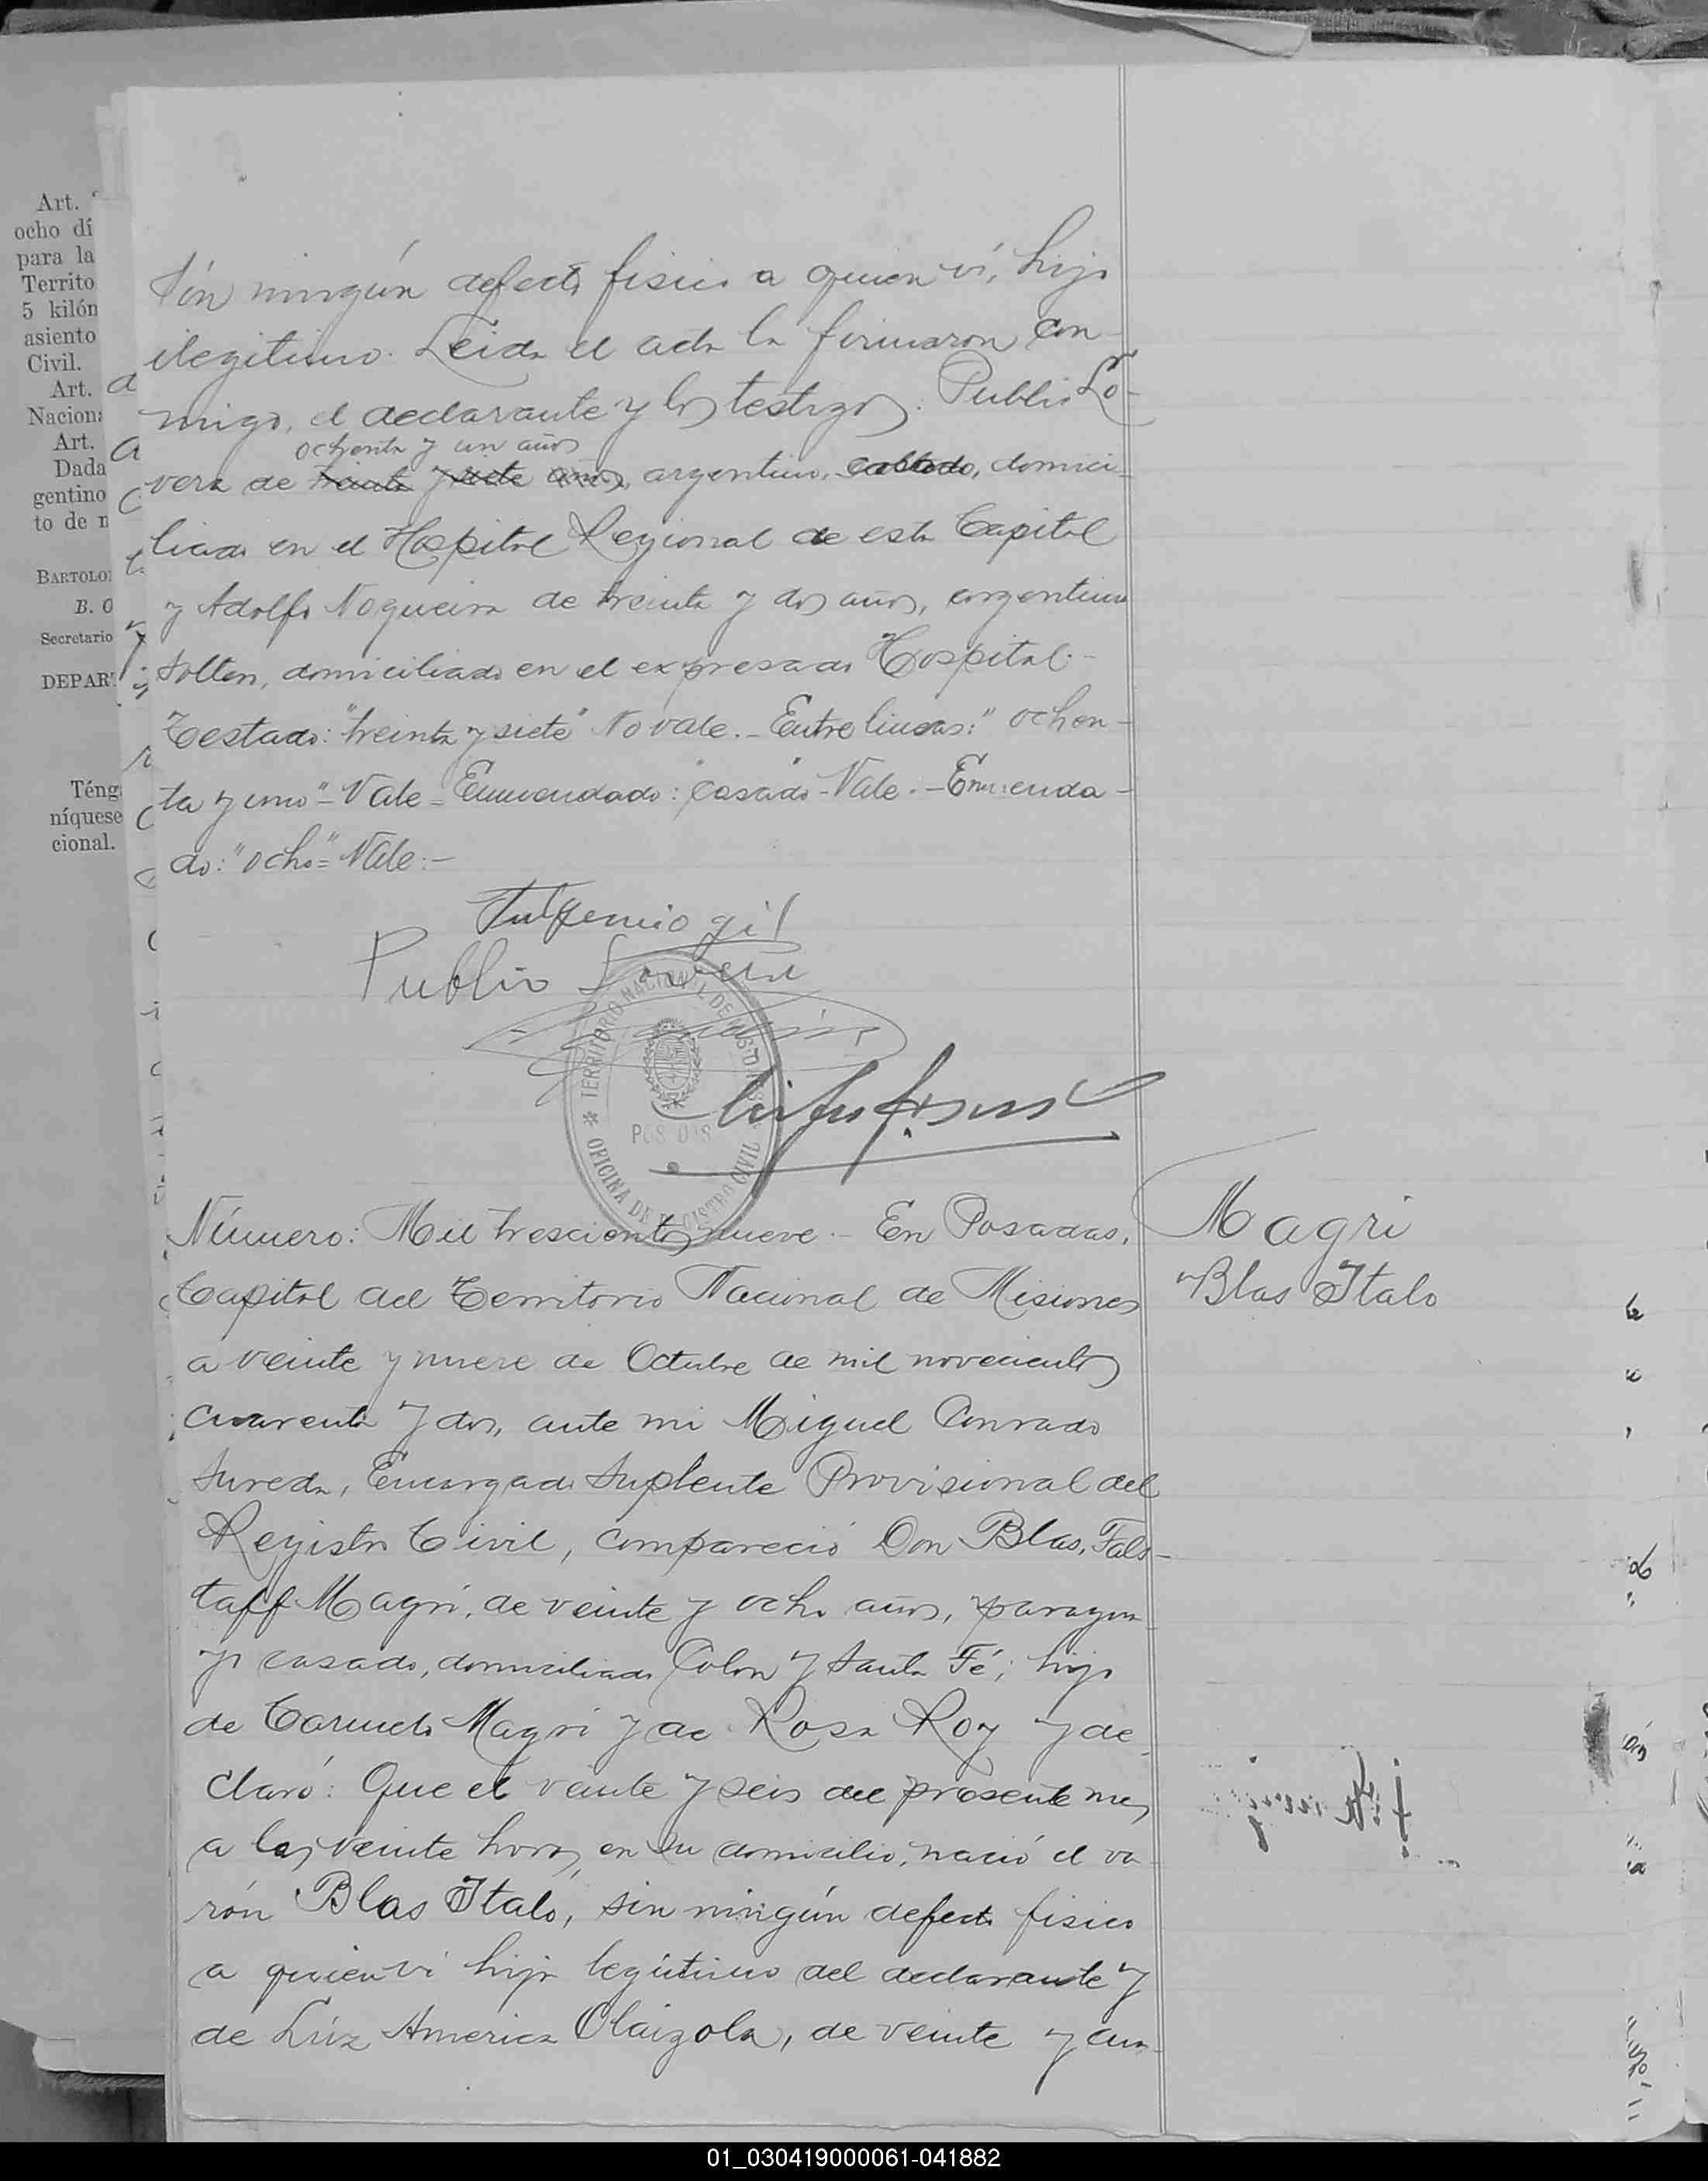 Art.
ocho dí
para la
Territo
5 kilón
asiento
Civil.
Art.
Nacion
Art.
Dada
gentino
to de n
BARTOLO
B. O
Secretario
DEPAR
Téng
níquese
cional.
sín ningún defecto fisico a quien ví, hijo
ilegitimo. Leida el acta la firmaron con-
migo, el declarante y los testigos. Publio Lo-
ochenta y un años
vera de treinta y siete años, argentino, casado, domici-
liado en el Hospital Regional de esta Capital
y Adolfo Nogueira de treinta y dos años, argentino
soltero, domiciliado en el expresado Hospital.-
Testado: "treinta y siete" No vale.- Entre lineas: "ochen-
ta y uno" - Vale - Enmendado: "casado" - Vale.- Enmenda-
do: "ocho" = Vale:-
Fulgencio gil
Publio Lovera
TERRITORIO NACIONAL DE MISIONES
POSADAS
OFICINA DE REGISTRO CIVIL
Número: Mil trescientos nueve.- En Posadas,
Capital del Territorio Nacional de Misiones
a veinte y nueve de Octubre de mil novecientos
cuarenta y dos, ante mi Miguel Conrado
Sureda, Encargado Suplente Provisional del
Registro Civil, compareció Don Blas, Fals-
taff Magri, de veinte y ocho años, paragua-
yo casado, domiciliado Colon y Santa Fé; hijo
de Carmelo Magri y de Rosa Roy y de-
claró: Que el veinte y seis del presente mes
a las veinte horas, en su domicilio, nació el va-
rón Blas Italo, sin ningún defecto fisico
a quien ví hijo legitimo del declarante y
de Lúz America Olaizola, de veinte y cua-
Magri
Blas Italo
01_030419000061-041882